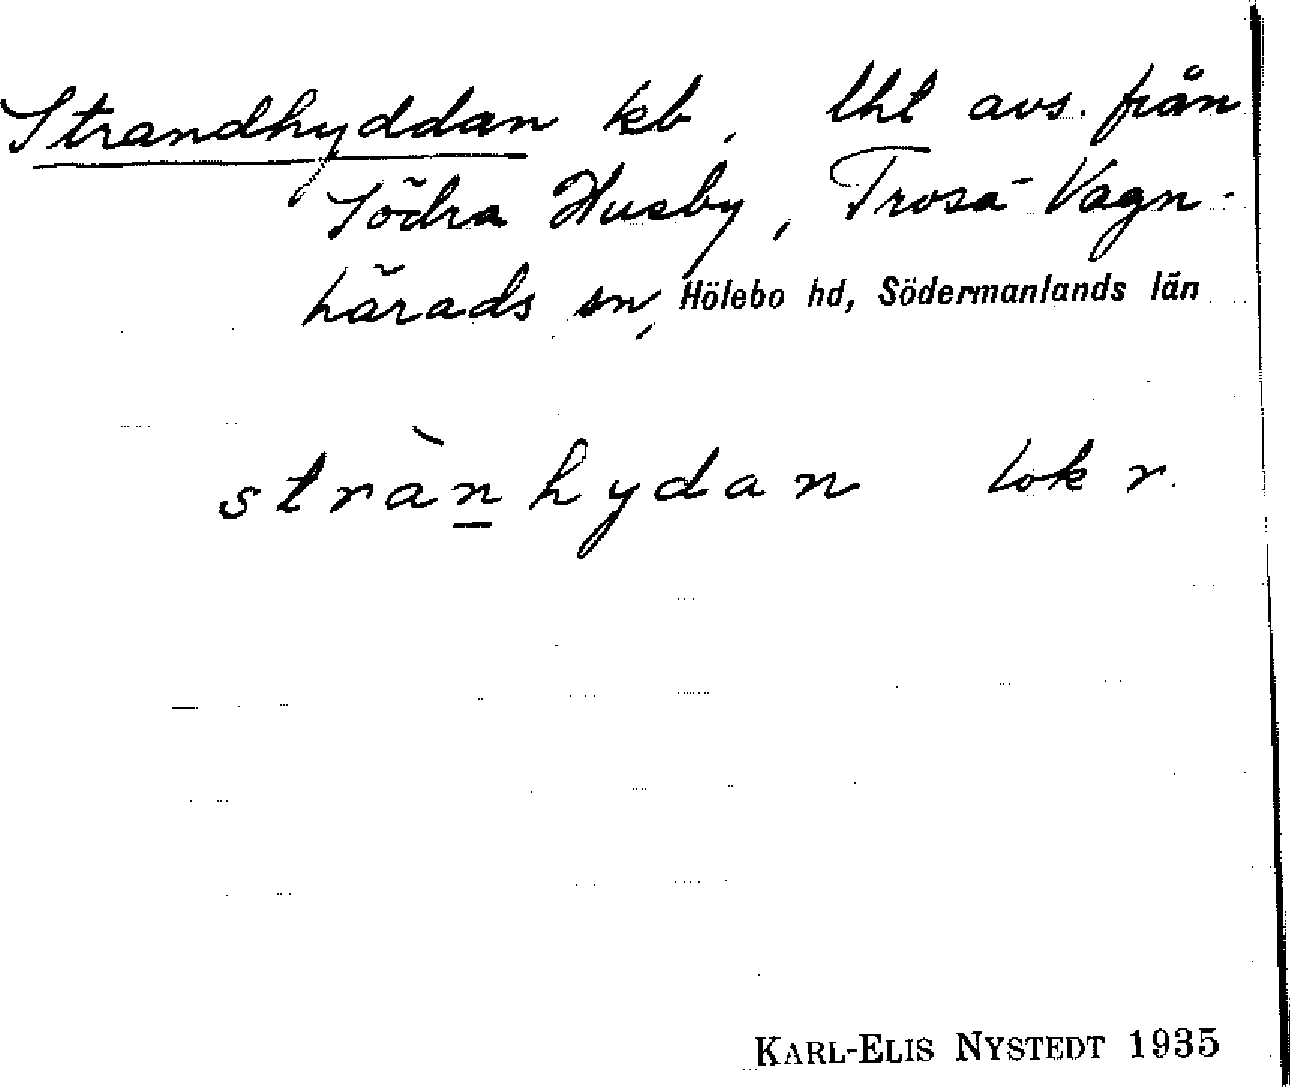 Strandhyddan kb, lht avs. från
Södra Husby, Trosa-Vagn-
härads sn, Hölebo hd, Södermanlands län
stràn̲hydan lok r.
KARL-ELIS NYSTEDT 1935